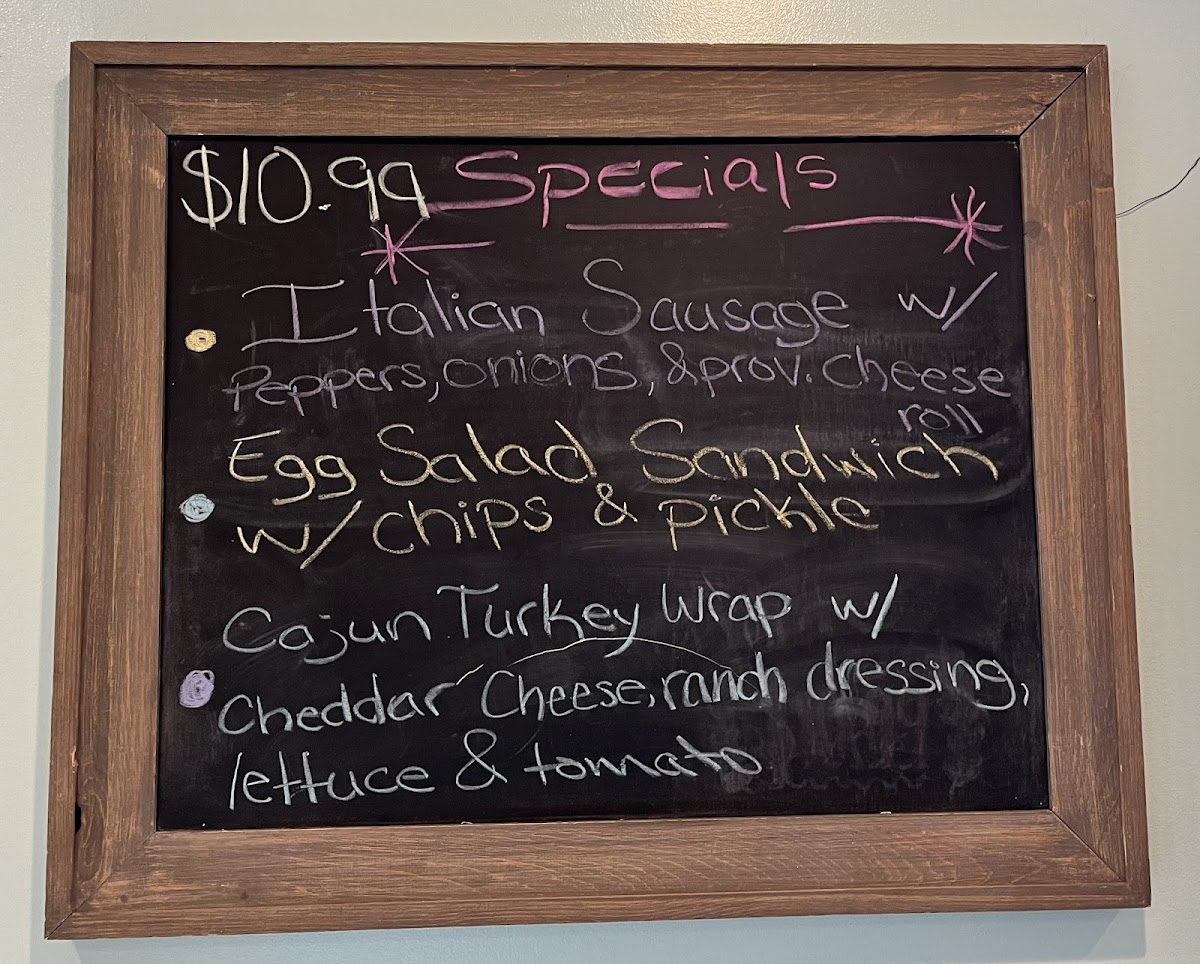 $10.99 Specials
Italian Sausage w/
Peppers, onions, & prov. cheese
roll
Egg Salad Sandwich
w/ chips & pickle
Cajun Turkey Wrap w/
Cheddar Cheese, ranch dressing,
lettuce & tomato